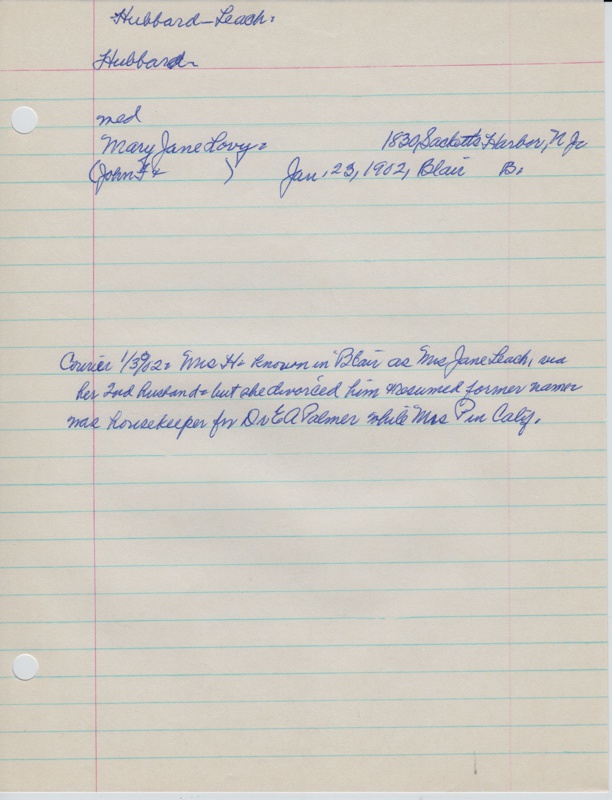 Hubbard-Leach:
Hubbard-
med
Mary Jane Lovy= 1830, Sacketts Harbor, N
(John F + ) Jan. 23, 1902, Blair B.
Courier 1/30/02= Mrs H- known in Blair as Mrs Jane Leach, via
her 2nd husband- but she divorced him & resumed former name=
was housekeeper for Dr E A Palmer while Mrs P in Calif.